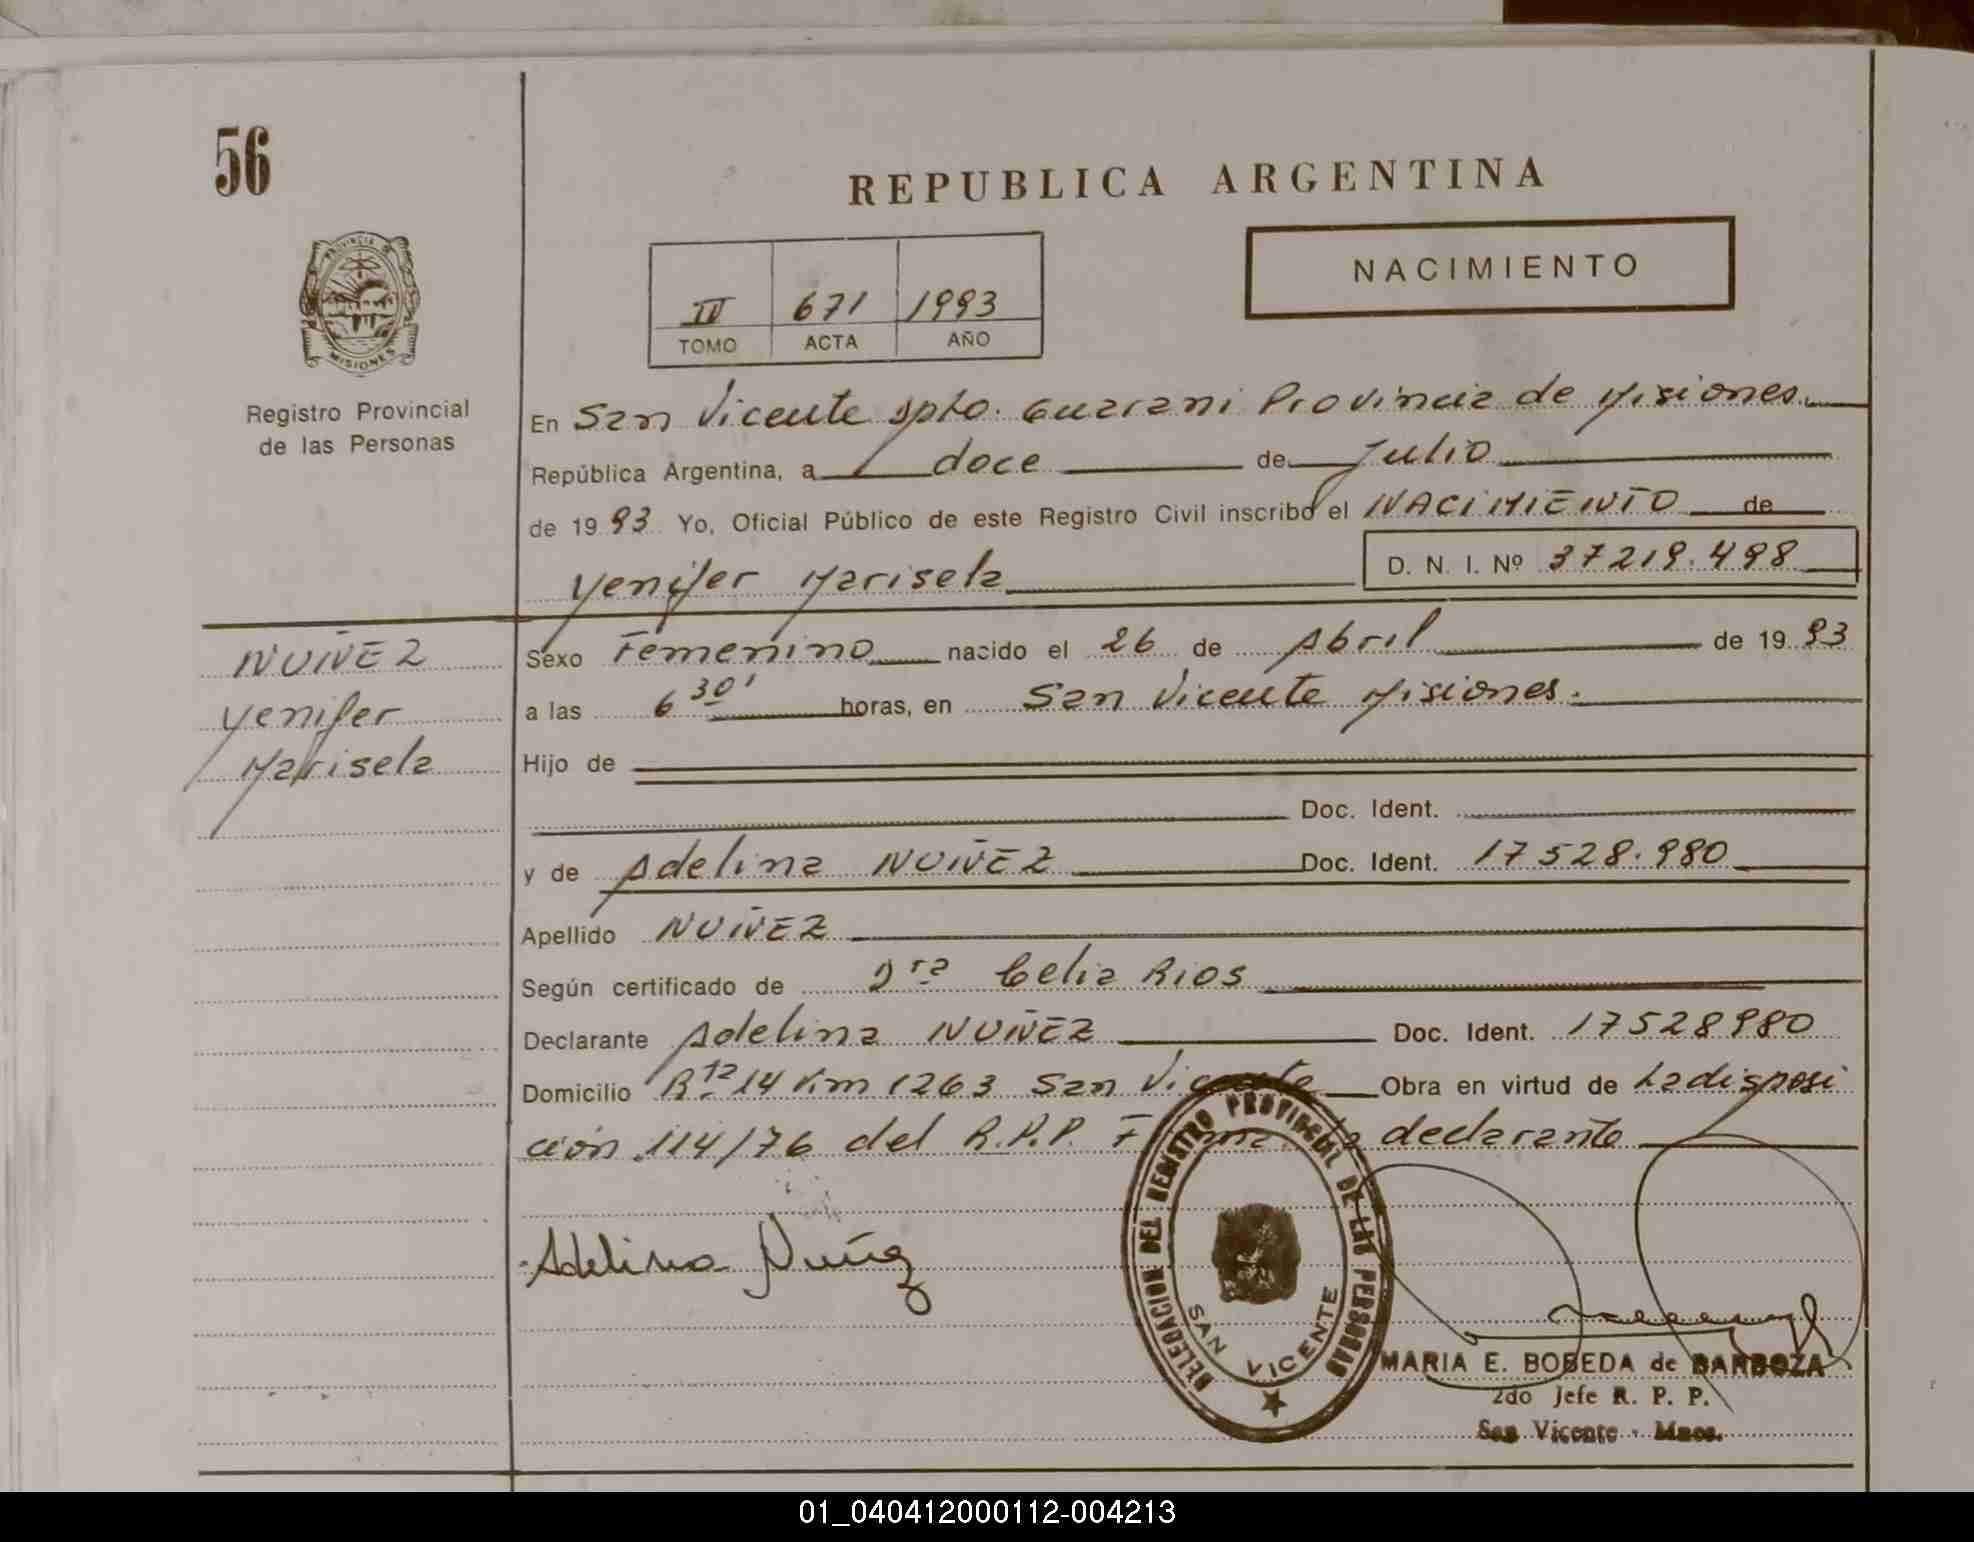 56
REPUBLICA ARGENTINA
NACIMIENTO
IV 671 1993
TOMO ACTA AÑO
PROVINCIA DE
MISIONES
Registro Provincial
de las Personas
En San Vicente Dpto. Guarani Provincia de Misiones.
República Argentina, a doce de Julio
de 1993 Yo, Oficial Público de este Registro Civil inscribo el NACIMIENTO de
Yenifer Marisela D. N. I. Nº 37219.498
NUÑEZ
Yenifer
Marisela
Sexo Femenino nacido el 26 de Abril de 1993
a las 6 30' horas, en San Vicente Misiones.
Hijo de
Doc. Ident.
y de Adelina NUÑEZ Doc. Ident. 17528.980
Apellido NUÑEZ
Según certificado de Dra Celia Rios
Declarante Adelina NUÑEZ Doc. Ident. 17528980
Domicilio Rta 14 Km 1263 San Vicente Obra en virtud de La disposi
ción 114/76 del R.P.P. Firma la declarante
Adelina Nuñez
DELEGACION DEL REGISTRO PROVINCIAL DE LAS PERSONAS
SAN VICENTE
MARIA E. BOBEDA de BARBOZA
2do Jefe R. P. P.
San Vicente - Mnes.
01_040412000112-004213